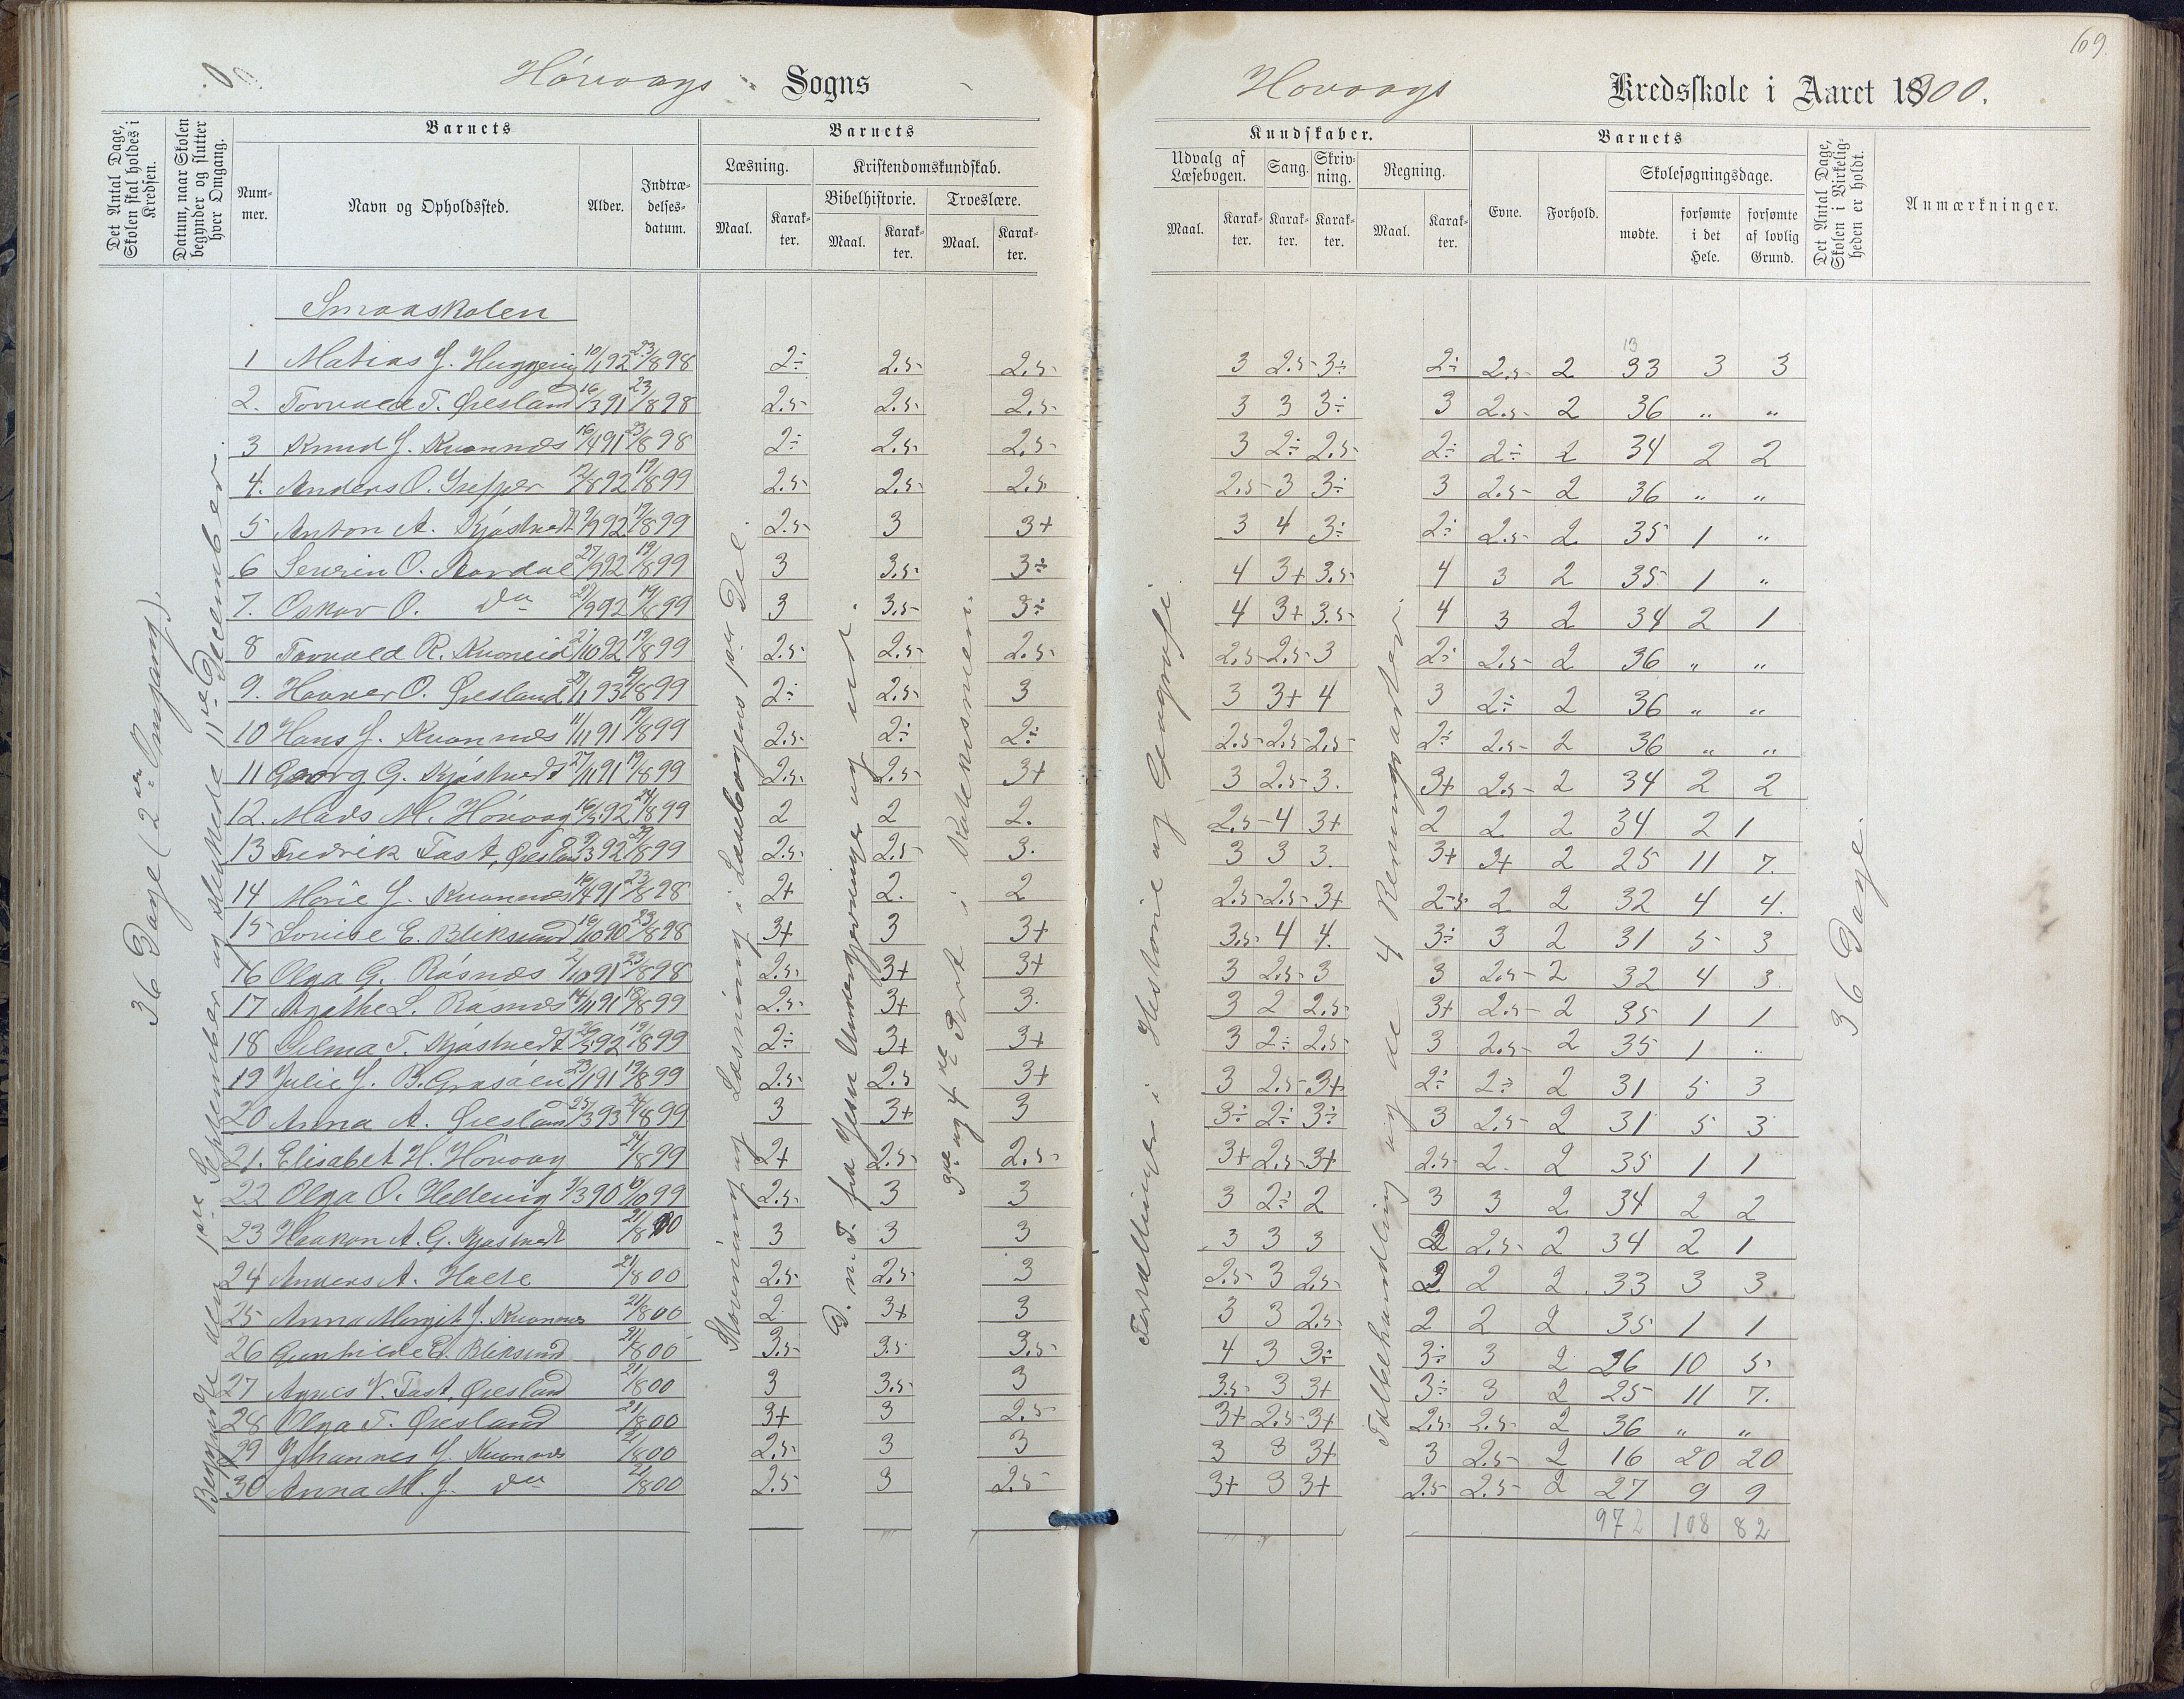 69
Høvaags Sogns
Høvaags Kredsskole i Aaret 1900.
Det Antal Dage, Skolen skal holdes i Kredsen.
Datum, naar Skolen begynder og slutter hver Omgang.
Barnets
Nummer.
Navn og Opholdssted.
Alder.
Indtrædelsesdatum.
Barnets
Læsning.
Maal.
Karakter.
Kristendomskundskab.
Bibelhistorie.
Maal.
Karakter.
Troeslære.
Maal.
Karakter.
Kundskaber.
Udvalg af Læsebogen.
Maal.
Karakter.
Sang.
Karakter.
Skrivning.
Karakter.
Regning.
Maal.
Karakter.
Barnets
Evne.
Forhold.
Skolesøgningsdage.
mødte.
forsømte i det Hele.
forsømte af lovlig Grund.
Det Antal Dage, Skolen i Virkeligheden er holdt.
Anmærkninger.
36 Dage (2den Omgang).
Begyndte den 1ste September og sluttede 11te December.
Stavning og Læsning i Læsebogens 1ste Del.
G. n. T. fra Jesu Undergjerninger og ud.
3die og 4de Part i Katekismen.
Fortællinger i Historie og Geografi
Talbehandling og de 4 Regningsarter.
36 Dage.
Smaaskolen
1 Matias J. Huggevig 10/1 92 23/8 98 2÷ 2.5 2.5 3 2.5 3÷ 2÷ 2.5 2 33 3 3
2. Torvald T. Øresland 16/3 91 23/8 98 2.5 2.5 2.5 3 3 3÷ 3 2.5 2 36 " "
3 Knud J. Kvannes 16/4 91 23/8 98 2÷ 2.5 2.5 3 2÷ 2.5 2÷ 2÷ 2 34 2 2
4. Anders O. 8 92 19/8 99 2.5 2.5 2.5 2.5 3 3÷ 3 2.5 2 36 " "
5 Anton A. Kjøstvedt 9 92 19/8 99 2.5 3 3+ 3 4 3÷ 2÷ 2.5 2 35 1 "
6 Severin O. 27/9 92 19/8 99 3 3.5 3÷ 4 3+ 3.5 4 3 2 35 1 "
7. Oskar O. do 27/9 92 19/8 99 3 3.5 3÷ 4 3+ 3.5 4 3 2 34 2 1
8 Torvald R. Kvoneid 2/10 92 19/8 99 2.5 2.5 2.5 2.5 2.5 3 2÷ 2.5 2 36 " "
9. Havner O. Øresland 1 93 19/8 99 2÷ 2.5 3 3 3+ 4 3 2÷ 2 36 " "
10 Hans J. Kvannes 11/11 91 19/8 99 2.5 2÷ 2÷ 2.5 2.5 2.5 2÷ 2.5 2 36 " "
11 Georg G. Kjøstvedt 27/11 91 19/8 99 2.5 2.5 3+ 3 2.5 3. 3+ 2.5 2 34 2 2
12. Mads M. Høvaag 16/5 92 24/8 99 2 2 2. 2.5 4 3+ 2 2 2 34 2 1
13 Fredrik Fast, Øresland 3 92 8 99 2.5 2.5 3. 3 3 3. 3+ 3+ 2 25 11 7.
14 Marie J. Kvannes 16/4 91 23/8 98 2+ 2. 2 2.5 2.5 3+ 2.5 2 2 32 4 4.
15 Lovise E. Bliksund 16/10 90 23/8 98 3+ 3 3+ 3.5 4 4. 3÷ 3 2 31 5 3
16 Olga G. Røsnæs 2/10 91 23/8 98 2.5 3+ 3+ 3 2.5 3 3 2.5 2 32 4 3.
17 Agathe L. Røsnæs 14/11 91 18/8 99 2.5 3+ 3. 3 2 2.5 3+ 2.5 2 35 1 1
18 Selma T. Kjøstvedt 5 92 19/8 99 2÷ 3+ 3+ 3 2÷ 2.5 3 2.5 2 35 1 "
19 Julie J. B. Grasåen 23/1 91 19/8 99 2.5 2.5 3+ 3 2.5 3+ 2÷ 2÷ 2 31 5 3
20 Anna A. Øresland 25/3 93 24/8 99 3 3+ 3 3÷ 2÷ 3÷ 3 2.5 2 31 5 3
21. Elisabet H. Høvaag 24/8 99 2+ 2.5 2.5 3+ 2.5 3+ 2.5 2. 2 35 1 1
22 Olga O. Hellevig 3 90 10 99 2.5 3 3 3 2÷ 2 3 3 2 34 2 2
23 Haakon A. G. Kjøstvedt 21/8 00 3 3 3 3 3 3 3 2.5 2 34 2 1
24 Anders A. Holte 21/8 00 2.5 2.5 3 2.5 3 2.5 2 2 2 33 3 3.
25 Anna Margit J. Kvannes 21/8 00 2 3+ 3 3 3 2.5 2 2 2 35 1 1
26 Gunhilde E. Bliksund 21/8 00 3.5 3.5 3.5 4 3 3÷ 3÷ 3 2 26 10 5
27 Agnes V. Fast, Øresland 21/8 00 3 3.5 3 3.5 3 3+ 3÷ 3 2 25 11 7.
28 Olga T. Øresland 21/8 00 3+ 3 2.5 3+ 2.5 3+ 2.5 2.5 2 36 " "
29 Johannes J. Kvannes 21/8 00 2.5 3 3 3 3 3+ 3 2.5 2 16 20 20
30 Anna M. J. do 21/8 00 2.5 3 2.5 3+ 3 3+ 2.5 2.5 2 27 9 9
972 108 82